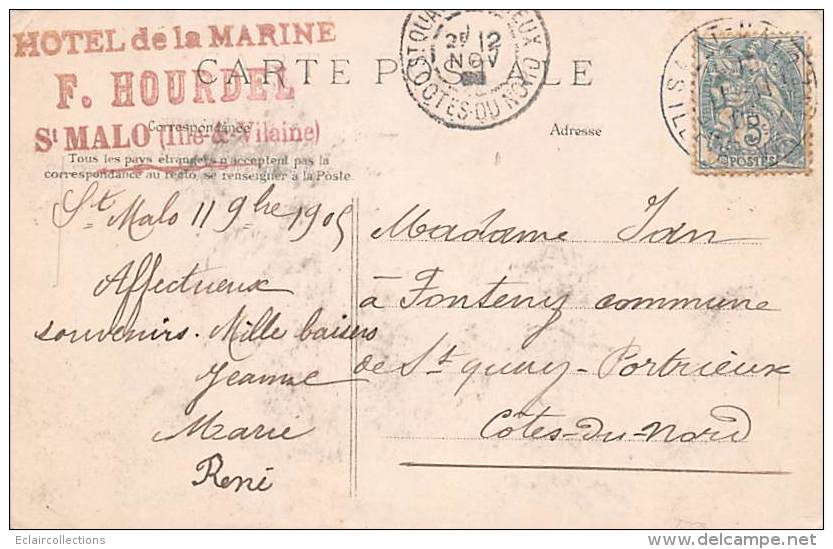 HOTEL de la MARINE
F. HOURDEL
St MALO (Ille-&-Vilaine)
CARTE POSTALE
Correspondance
Adresse
Tous les pays étrangers n'acceptent pas la
correspondance au recto, se renseigner à la Poste
ST QUAY
12
NOV
COTES-DU-NORD
POSTES
St Malo 11 9bre 1905
Affectueux
souvenirs. Mille baisers
Jeanne
Marie
René
Madame Jan
à Fonteny commune
de St quay-Portrieux
Côtes-du-Nord
Eclaircollections
www.delcampe.net